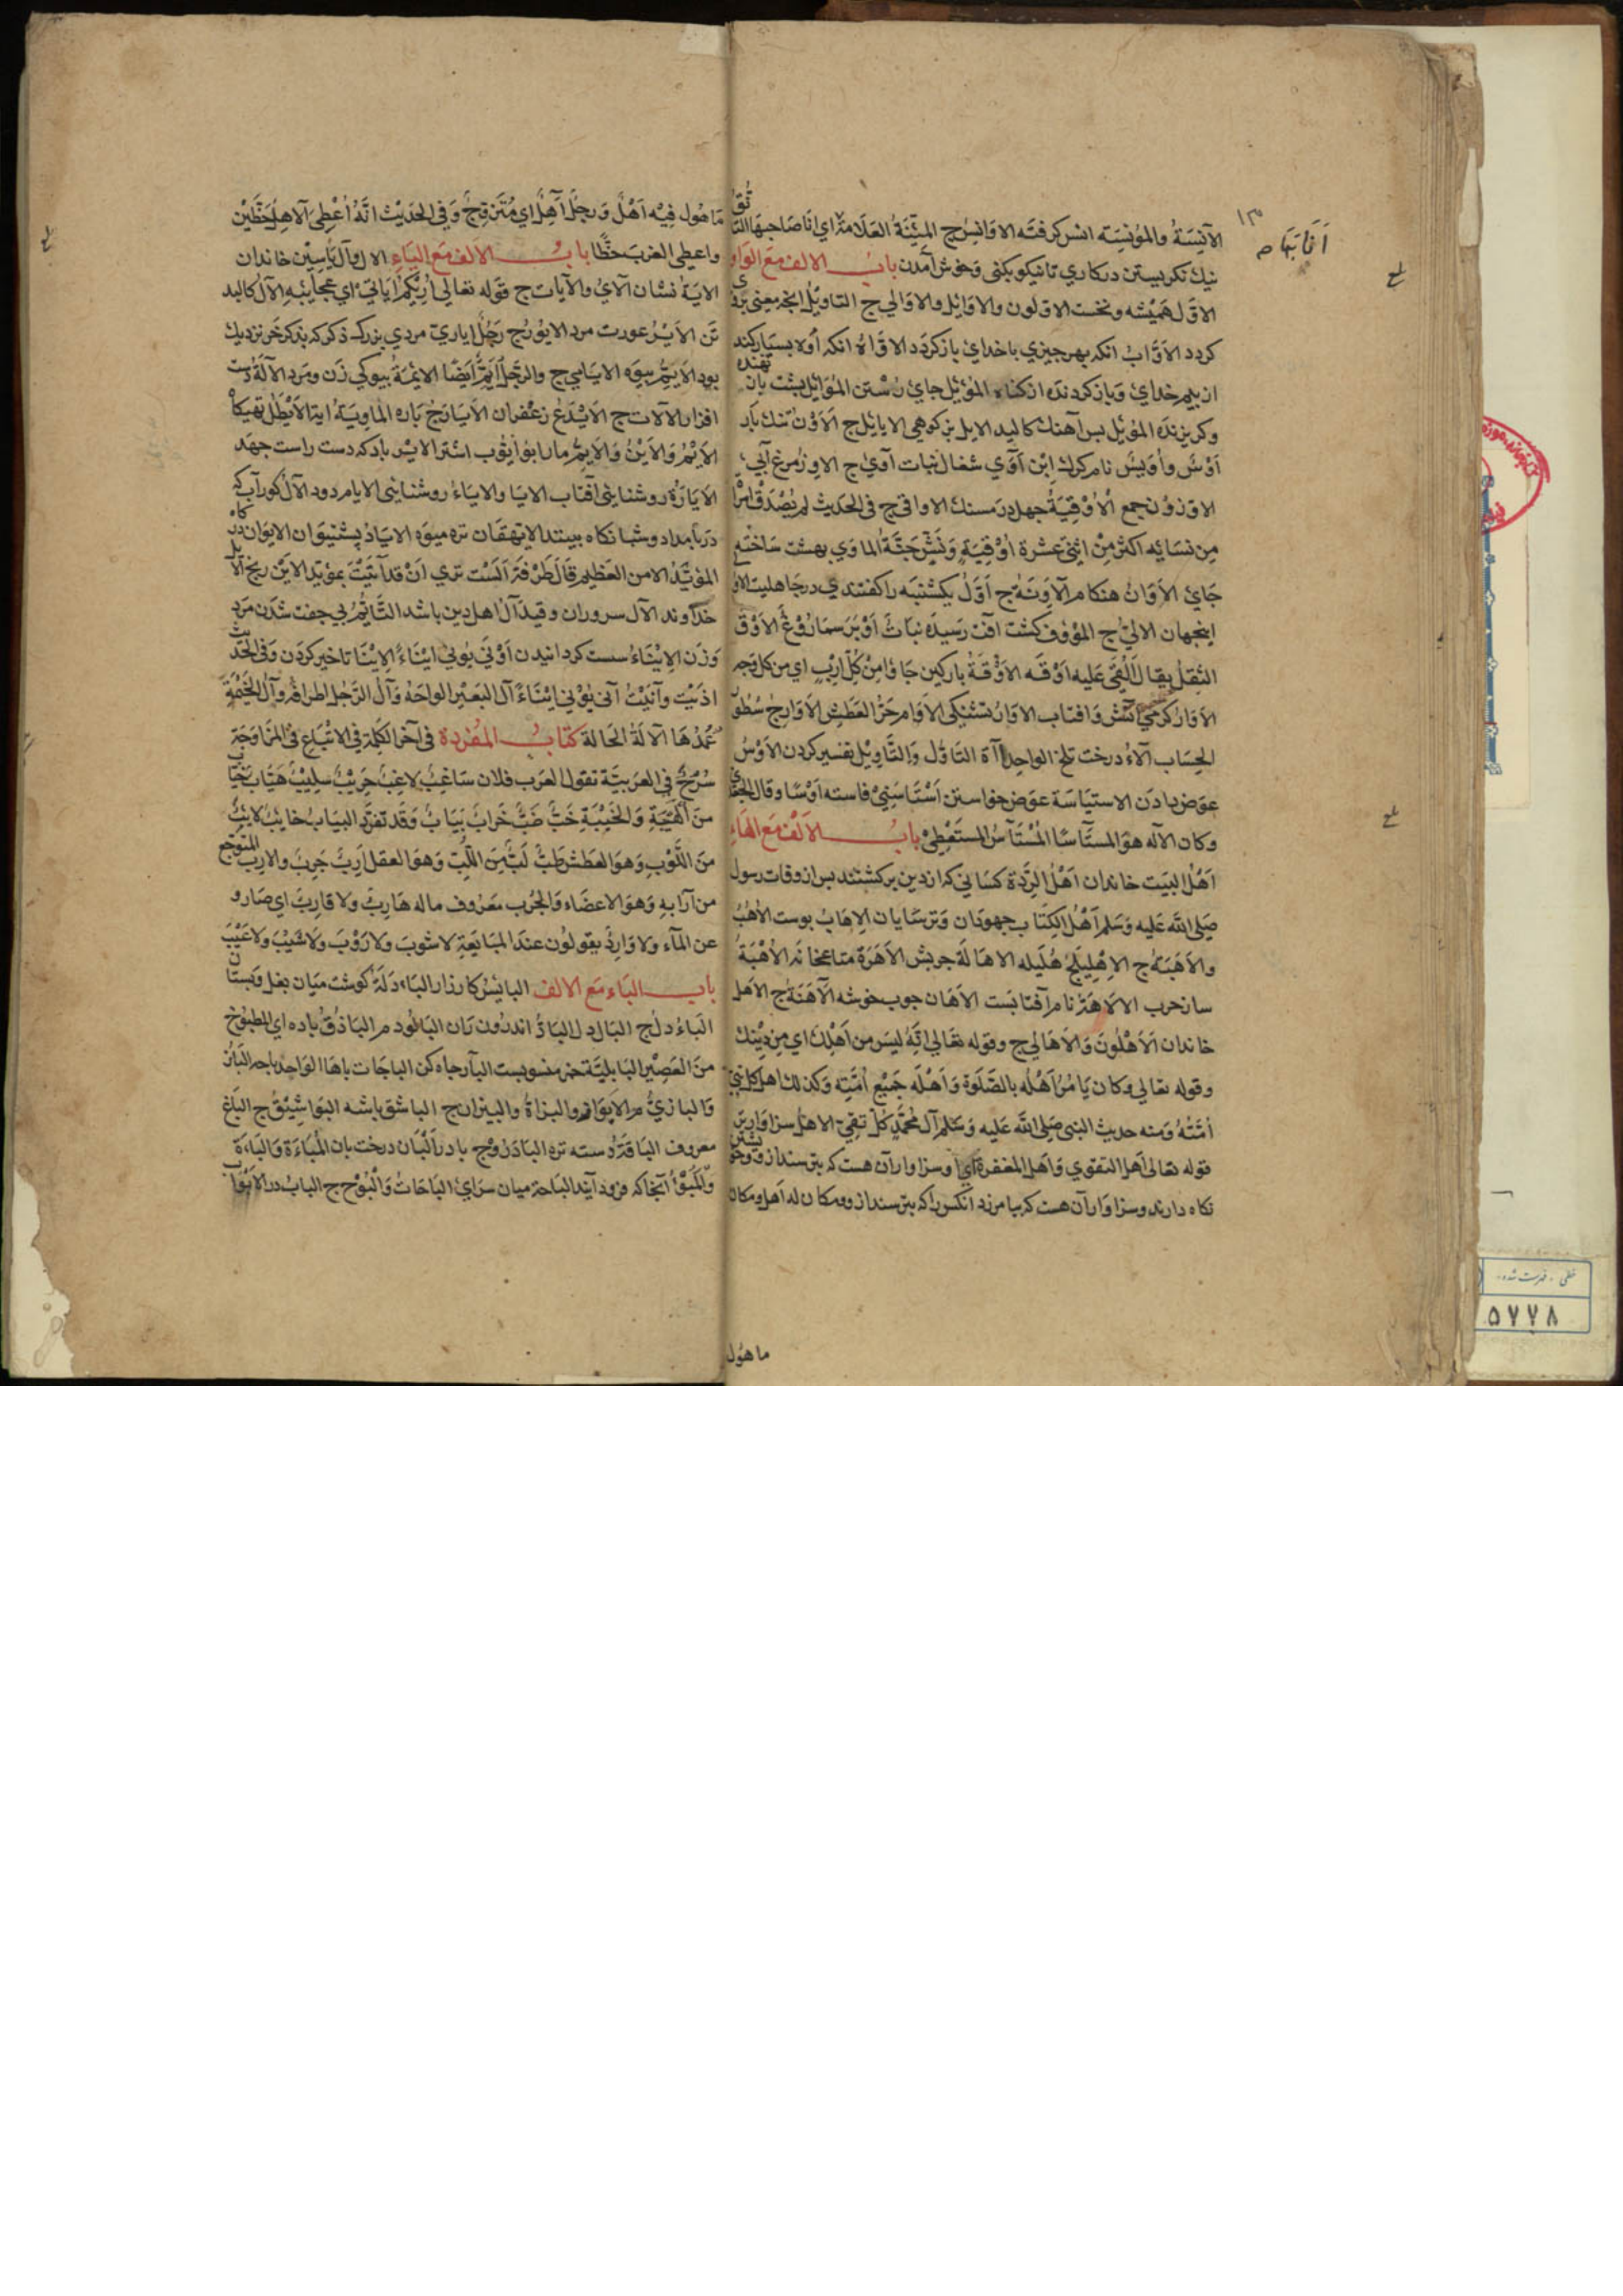 الآنِسَةُ والمُؤنِسَته انس كرفته الاوانِسُ ج المَئِنَّةُ العَلَامَةُ اي اَنَا صَاحِبهَا التانُّقُ
نيك نكريستن در كاري تا نيكو بكنى وَخوش آمدن بابُ الالف مَعَ الواو
الاوّل هَميْشه ونخست الاوّلون والاوَائِل والاوَالي ج التاويْلُ انچه معنى بر وى
كردد الاَوَّابُ انكه بهر چيزي با خداي باز كردد الاَوَّاهُ انكه اُوه بسيَار كند
از بيم خداي وَباز كردنده از كناه المَوْئِل جاي رُسْتن المُوَائِل پشت بان نهنده
وكريزنده المُوئِل بس آهنك كالبد الايل بز كوهى الايايُل ج الاَوْن تنك بار
اَوْس وأوَيس نام كرك اِبْن آوَي شغال نبات آوي ج الاوز مرغ آبي
الاوزون جمع الاُوْقِيَةُ چهل درَم سنك الاواقى ج فى الحديث لم يُصْدِق امْرَأً
مِن نسَائِه اكثر مِنْ اثِنَىْ عَشرة اُوْقِيَةٍ وَنَشٍّ جَنَّةُ الماوي بهشت سَاخته
جَايْ الاَوَانُ هنكام الآوِنَةُ ج اَوَّلُ يكشنبَه را كفتندي در جَاهليت الاولى
اينجهان الاُلى ج المَؤُوف كشت افت رَسيده نبَات اَوْبَر سمَارُوْغ الاَوْق
الثِقل يقال اَلْقِى عَليه اوْقَه الاَوْقَةُ باركين جَاؤا مِنْ كُلِّ اِرْبٍ اي مِن كل وَجه
الاُوَارُ كرمي آتش وَ افتاب الاوَارُ تشنكى الاُوَام حَرُّ العَطَش الاَوَارِج سُطُوْر
الحِسَاب الآءُ درخت تلخ الواحد آآة التاَوّل والتاويْل تفسير كردن الاَوْسُ
عِوَض دادن الاستيَاسَة عوَض خواستن اَسْتَاسَنِيْ فاسته اَوْسًا وقال الجعدي
وكان الآله هوَ المستَآسَا المُسْتَآسُ المستَعْطِيْ بابُ الاَلف مَعَ الهَاءِ
اَهْلُ البيَت خاندان اَهْلُ الرِدَّة كسَانى كه از دين بركشتند بس از وفات رسول
صَلى الله عَليه وَسَلم اَهْلُ الكتَاب جهودان وَترسَايان الاِهَابُ پوست الاُهُبُ
والاَهَبَةُ ج الاِهْلِيلَجُ هَليله الاهَالَة چربش الاَهَرَة متاعخانه الاُهْبَةُ
ساز حرب الالاهَةُ نام آفتابَست الاَهَان چوب خوشه الآهَنَةُ ج الاَهل
خاندان الاَهْلُونَ وَالاَهَالِي ج وقوله تعَالى اِنَّهُ ليسَ من اَهْلِكَ اي مِن دِيْنِكَ
وقوله تعَالى وكان يَامُرُ اَهْلَهُ بالصَّلوة وَاَهْلَه جَمِيْع اُمَّتِه وَكذلك اهل كل نبيّ
اُمَّتُهُ وَمنه حديث النبى صَلى الله عَليه وَسَلم آل محمَّدٍ كلُّ تقِيّ الاهل سزاوارتر
قوله تعَالى اَهل التقوي وَاَهل المغفرة اي او سزاوار آن هست كه بترسند از و وخويشتن
نكاه دارند وسزاوَار آن هست كه بيامرزد انكس را كه بترسند از و ومكان له اَهل ومكان
ماهُول
اَنَا تِيهَا صح
مَاهُول فِيْه اَهْلٌ وَرجلٌ آهِلٌ اي مُتَزوِّجٌ وَفِى الحَديْث انّهُ اُعْطِيَ الآهِلُ حَظَّيْن
وَاعطِي العزبَ حَظًّا بابُ الالف مَعَ اليَاءِ الال وآل يَاسِيْن خاندان
الاَيَةُ نشان الآيُ والآيات ج قوله تعَالى اُرِيْكُم اٰيَاتي اي عجايبَه الآل كالبد
تن الاَيْرُ عورت مرد الايُورُ ج رَجُلٌ اياري مردي بزرك ذكر كه بذكر خر نزديك
بود الاَيِّمُ بيوَه الايَامي ج والرجل اَيِّمٌ اَيضًا الايمَةُ بيوكى زن ومَرد الآلةُ دست
افزار الآلات ج الاَيْدَعُ زعفران الاَيَارَجُ ياره الماويَة ايْنه الاَيْطَلُ تهيكاه
الاَيْمُ وَالاَيْنُ وَالاَيِّمُ مار ابو اَيّوب اشتر الايْر باد كه دست راست جهد
الاَيَاةُ روشنايئى آفتاب الايَا والايَاءُ روشنايئى الايام دود الآل كوراب كه
در بامداد وشبانكاه بينند الايهقَان تره ميوَه الايَادُ پشتيوان الايوَان دركاه
المؤيَّدُ الامن العَظِيم قَالَ طَرْفَة اَلَسْت تري اَنْ قَد اَتَيْتَ بمؤيَد الاَيْن رنج
خداوند الآل سروران وقيد آل اهل دين باشد التَّايُّم بى جفت شدن مَرد
وَزن الاِيْنَاءُ سست كردانيدن اَوْنَي يُونِي اِيْنَاءً الاِيْنَا تاخير كردن وَفى الحَديث
اٰذَيْتَ وآنَيْتَ آنى يُؤْنِي اِيْنَاءً آل البَعِيْر الواحَه وَآلُ الرَّجُل اطرافه وآل الخَيْمَة
عُمُدُهَا الآلَة الحَالة كتابُ المفْردة فى آخر الكلِمَة فى الاِتْبَاع فى المزَاوَجَة
من الهَيْبَةِ وَالخَيْبَةِ خَبٌّ ضَبٌّ خَرابٌ يَبَابٌ وَقَد تفرّد اليبَابُ خايِبٌ لايِبٌ
منَ اللُّوْبِ وَهوَ العَطش طَبٌّ لَبٌّ مِنَ اللُّبِّ وَهوَ العقل اَرِبٌ جَرِبٌ والارِبُ المتوَجع
من آرَابهِ وَهوَ الاعضَاء وَالجُرب مَعرُوف ماله هَارِبٌ ولا قارِبٌ اي صَادِرٌ
عن المآء وَلا وَارِدٌ يقولون عندَ المبَايَعَةِ لا شوب ولا رَوْب وَلا شَيْب وَلا عَيْبَ
باب البَاء مَع الالف البائس كارزار البَاءدَلَة كوشت ميَان بغل وَپستان
منَ العَصِيْر البَابليَّة خمر منسوبست البآر چاه كن الباجَات باهَا الواحد باجه البَازُ
وَالبازيُّ م الاَبوَاز والبُزَاةُ والبيزان ج الباشق باشه البَوَاشِيْقُ ج البَاغ
معروف البَاقَةُ دسته تره البَاذرُوْج باذرو البَان درخت بان المُبَاءَة وَالبَاءَة
وَالمُبَوَّأُ آنجا كه فرود آيند البَاحَة ميان سرَايْ البَاحَاتُ وَالبُوْح ج البابُ در الاَبْوَاب
خطى - فهرست شده
۵۷۷۸